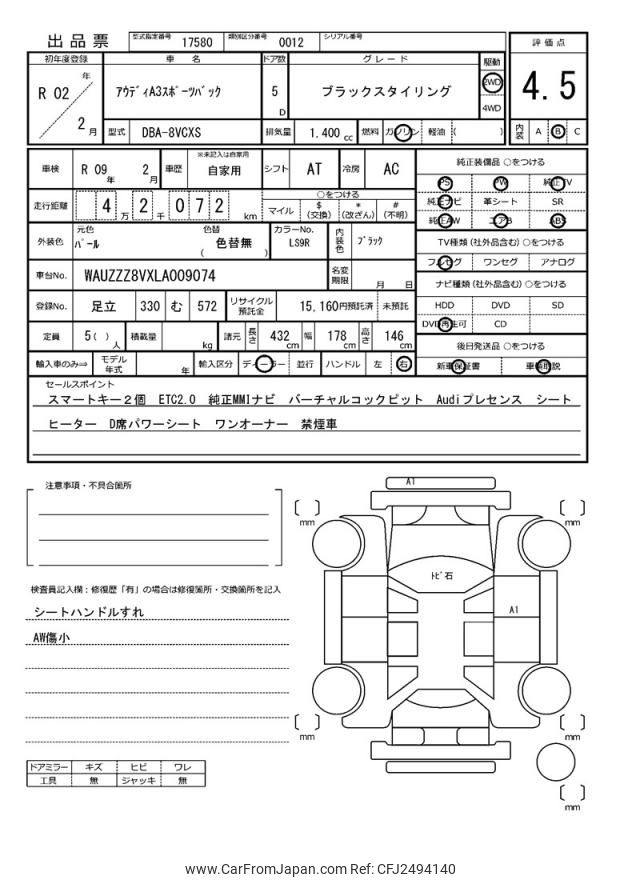 出品票 型式指定番号 17580 類別区分番号 0012 シリアル番号
評価点
初年度登録 車 名 ドア数 グレード 駆動
R 02 年 2 月 ｱｳﾃﾞｨA3ｽﾎﾟｰﾂﾊﾞｯｸ 5 D ブラックスタイリング 2WD 4WD
4.5
型式 DBA-8VCXS 排気量 1,400 cc 燃料 ガソリン 軽油 ( )
内装 A B C
車検 R 09 年 2 月 車歴 ※未記入は自家用 自家用 シフト AT 冷房 AC
純正装備品 ○をつける
PS PW 純正TV
走行距離 4 万 2 千 0 7 2 km
○をつける
マイル $ (交換) * (改ざん) # (不明)
純正ナビ 革シート SR
純正AW エアB ABS
外装色 元色 パール 色替 色替無 ( ) カラーNo. LS9R 内装色 ﾌﾞﾗｯｸ
TV種類 (社外品含む) ○をつける
フルセグ ワンセグ アナログ
車台No. WAUZZZ8VXLA009074 名変期限 月 日
ナビ種類 (社外品含む) ○をつける
登録No. 足立 330 む 572 リサイクル預託金 15,160円預託済 未預託
HDD DVD SD
DVD再生可 CD
定員 5( ) 人 積載量 kg 諸元 長さ 432 cm 幅 178 cm 高さ 146 cm
後日発送品 ○をつける
輸入車のみ⇒ モデル年式 年 輸入区分 ディーラー 並行 ハンドル 左 右
新車保証書 車輌取説
セールスポイント
スマートキー２個 ETC2.0 純正MMIナビ バーチャルコックピット Audiプレセンス シート
ヒーター D席パワーシート ワンオーナー 禁煙車
注意事項・不具合箇所
A1
mm mm
ﾄﾋﾞ石
A1
検査員記入欄：修復歴「有」の場合は修復箇所・交換箇所を記入
シートハンドルすれ
AW傷小
mm mm
ドアミラー キズ ヒビ ワレ
工具 無 ジャッキ 無
mm
www.CarFromJapan.com Ref: CFJ2494140